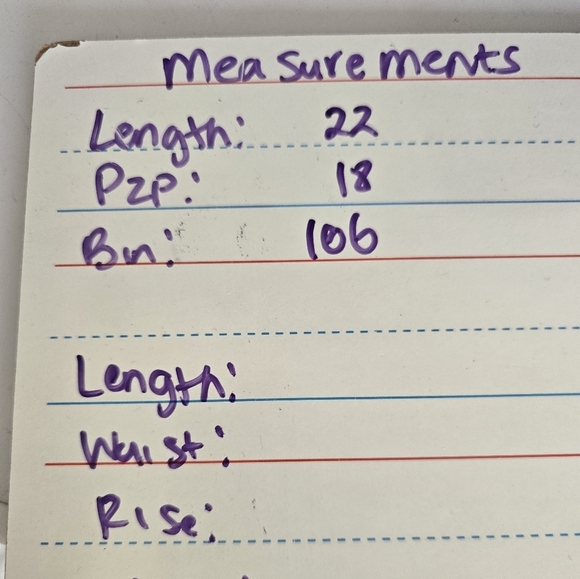 Measurements
Length: 22
P2P: 18
Bn: 106
Length:
Waist:
Rise: